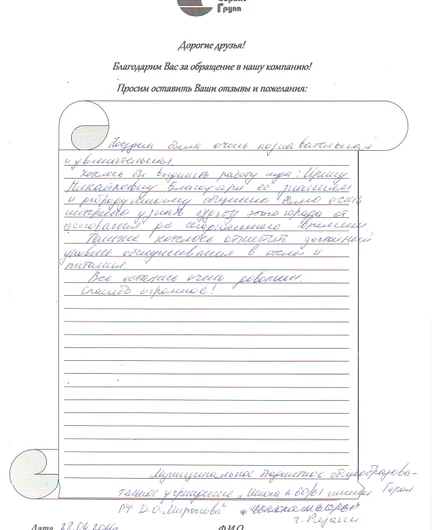 Групп
Дорогие друзья!
Благодарим Вас за обращение в нашу компанию!
Просим оставить Ваши отзывы и пожелания:
Поездка была очень познавательная
и увлекательная.
Хотелось бы выделить работу гида: Ирину
Михайловну. Благодаря её знаниям
и общению было очень
интересно узнать этого города от
основания до современного времени.
Также хотелось отметить достойный
уровень обслуживания в отеле и
питания.
Все остались очень довольны.
Спасибо огромное!
Муниципальное бюджетное общеобразова-
тельное учреждение "Школа № 60/61 имени Героя
РФ Д.О. Миронова"
г. Рязани
Дата
Ф.И.О.